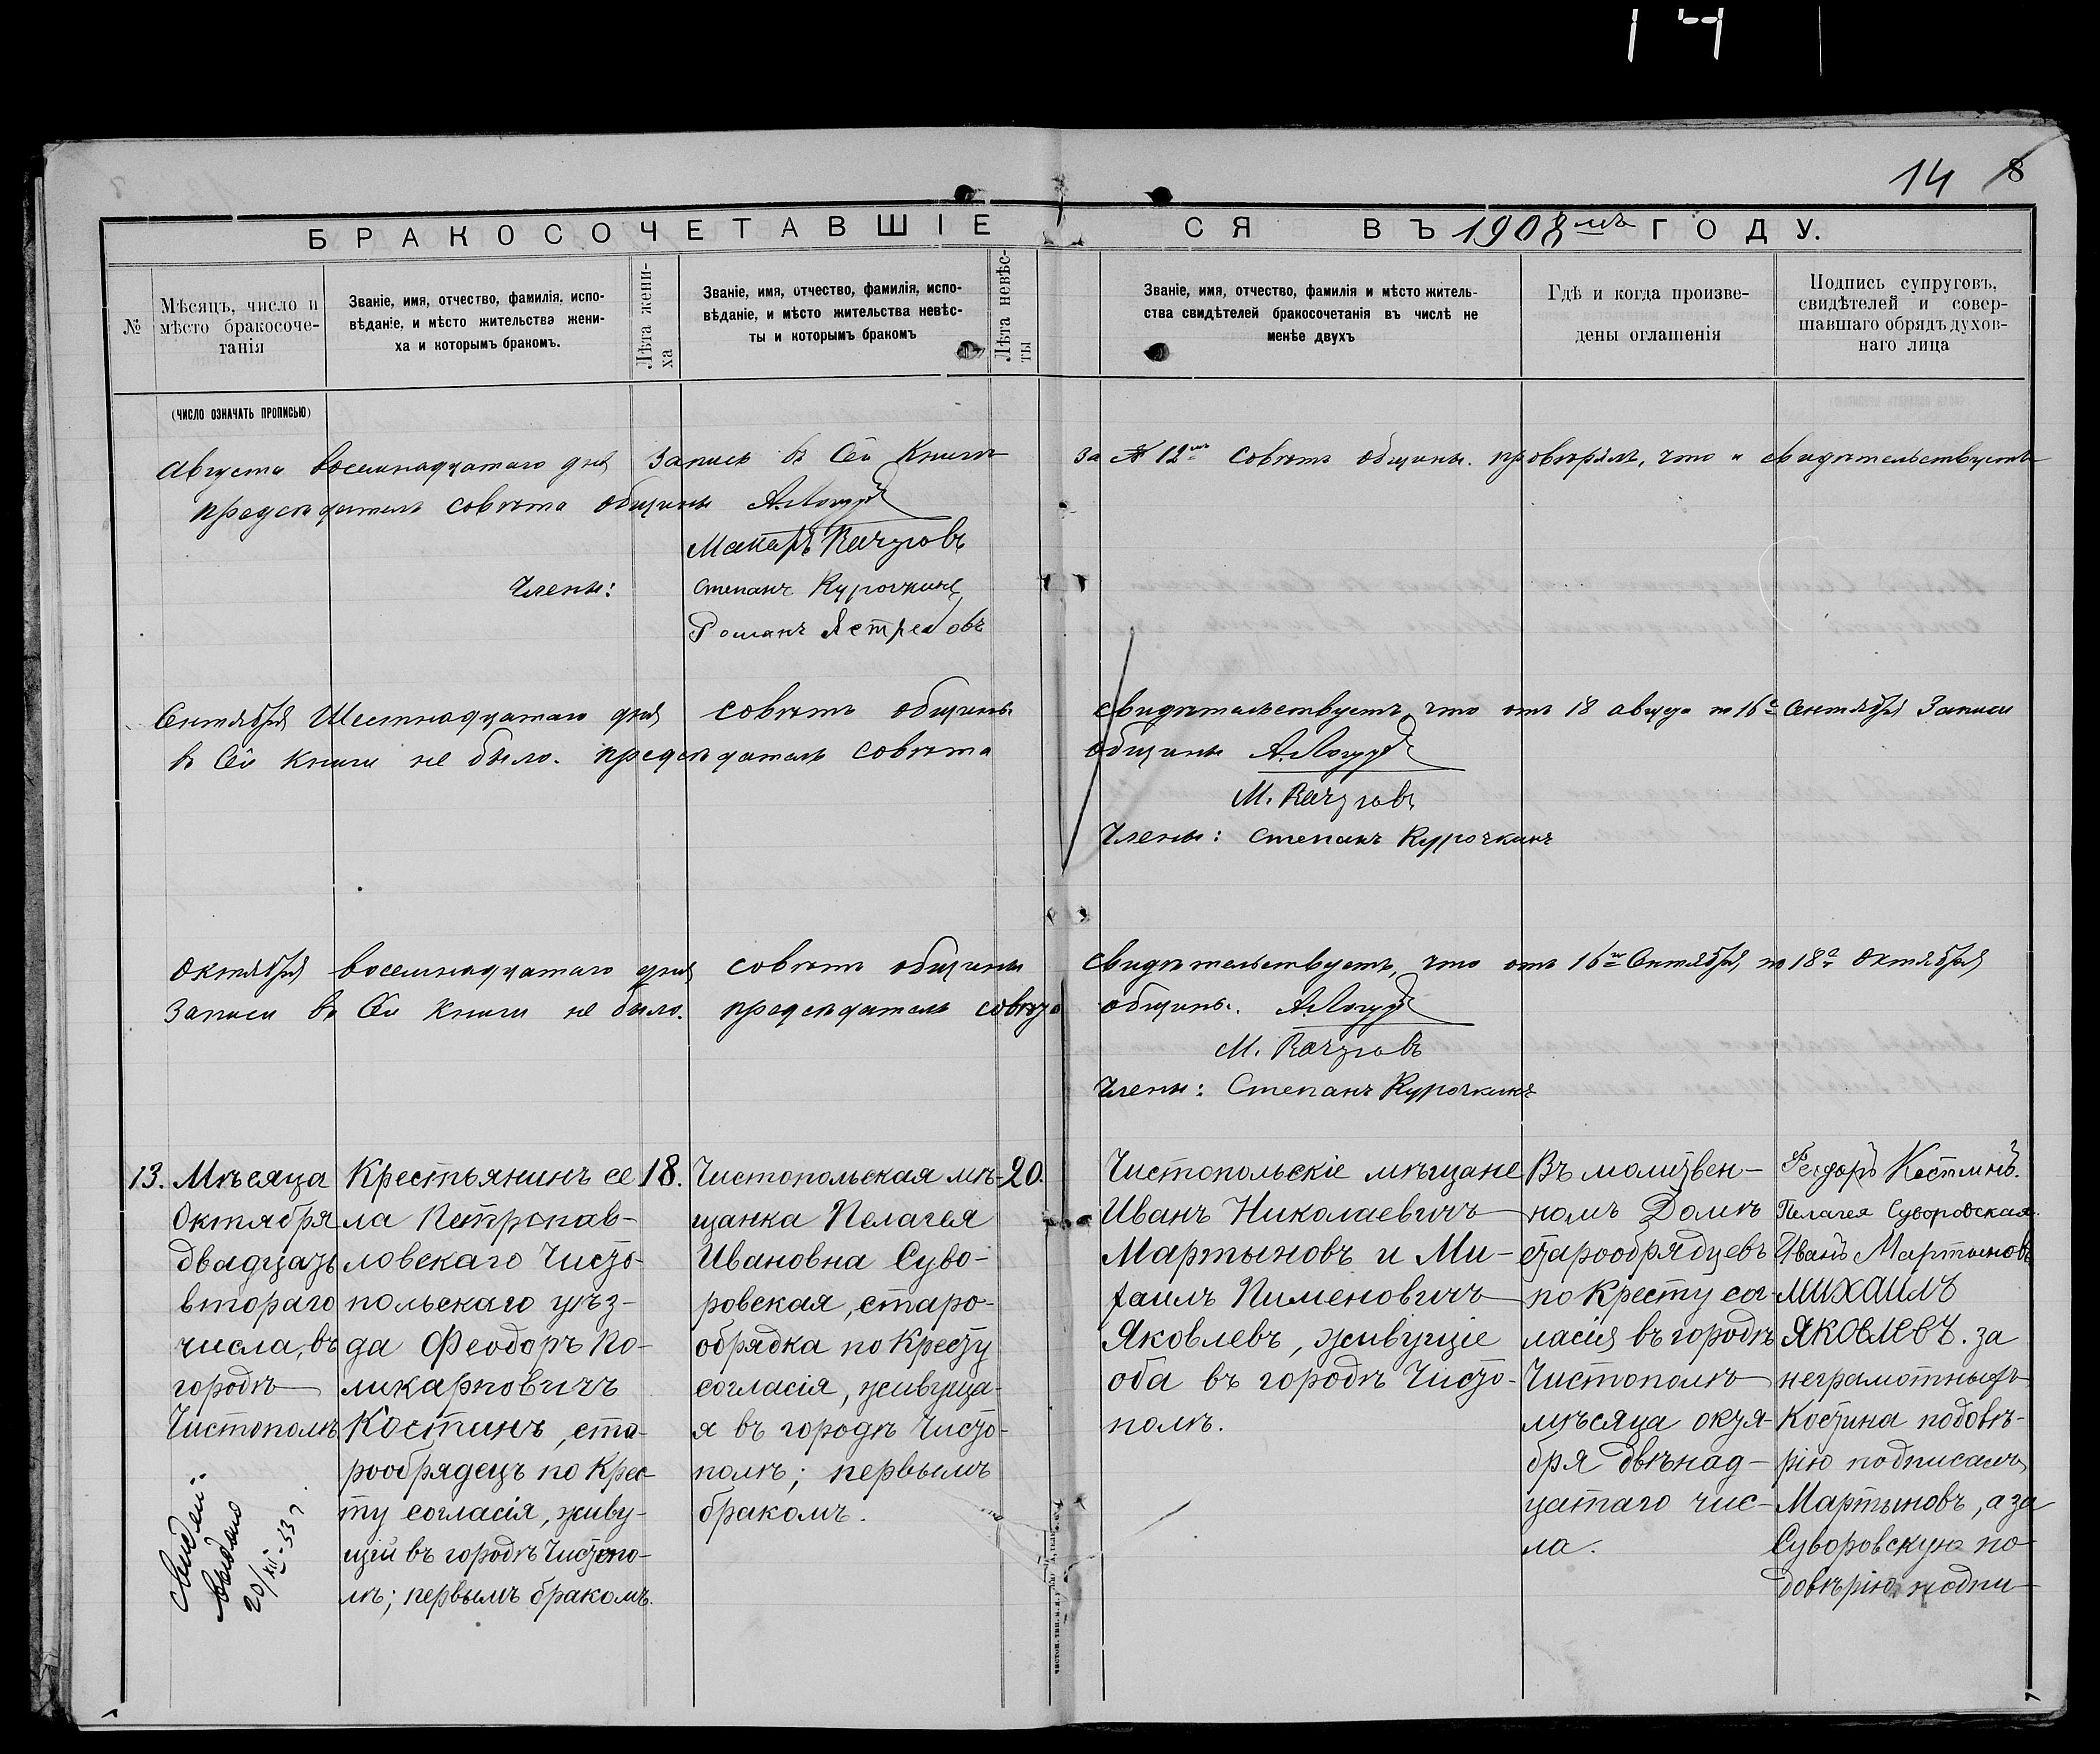 14
14 8
БРАКОСОЧЕТАВШІЕСЯ ВЪ 1908мъ ГОДУ.
№
Мѣсяцъ, число и
мѣсто бракосоче-
танія
Званіе, имя, отчество, фамилія, испо-
вѣданіе, и мѣсто жительства жени-
ха и которымъ бракомъ.
Лѣта жени-
ха
Званіе, имя, отчество, фамилія, испо-
вѣданіе, и мѣсто жительства невѣс-
ты и которымъ бракомъ
Лѣта невѣс-
ты
Званіе, имя, отчество, фамилія и мѣсто житель-
ства свидѣтелей бракосочетанія въ числѣ не
менѣе двухъ
Гдѣ и когда произве-
дены оглашенія
Подпись супруговъ,
свидѣтелей и совер-
шавшаго обрядъ духов-
наго лица
(ЧИСЛО ОЗНАЧАТЬ ПРОПИСЬЮ)
Августа восемнадцатаго дня Запись в Сей Книге за № 12мъ Совѣтъ общины провѣрялъ, что и свидѣтельствуетъ
предсѣдатель совѣта общины
Макаръ
Члены: Степанъ Курочкинъ
Романъ Ястребовъ
Сентября Шестнадцатаго дня совѣтъ общины свидѣтельствуетъ, что отъ 18 августа по 16е Сентября Записи
в Сей Книги не было. предсѣдатель совѣта общины
М.
Члены: Степанъ Курочкинъ
Октября восемнадцатаго дня совѣтъ общины свидѣтельствуетъ, что отъ 16го Сентября по 18е Октября
Записи въ Сей Книги не было. предсѣдатель совѣта общины.
М.
Члены: Степанъ Курочкинъ
13.
Мѣсяца
Октября
двадцать
втораго
числа, въ
городѣ
Чистополѣ
выдано
20/XII-53 г.
Крестьянинъ се
ла Петропав-
ловскаго Чисто-
польскаго уѣз-
да Феодоръ По-
ликарповичъ
Костинъ, ста-
рообрядецъ по Крес-
ту согласія, живу-
щій въ городѣ Чистопо-
лѣ; первымъ бракомъ.
18.
Чистопольская мѣ-
щанка Пелагея
Ивановна Суво-
ровская, старо-
обрядка по Кресту
согласія, живуща-
я въ городѣ Чисто-
полѣ; первымъ
бракомъ.
20.
Чистопольскіе мѣщане
Иванъ Николаевичъ
Мартыновъ и Ми-
хаилъ Пименовичъ
Яковлевъ, живущіе
оба въ городѣ Чисто-
полѣ.
Въ молитвен-
номъ Домѣ
старообрядцевъ
по Кресту сог-
ласія въ городѣ
Чистополѣ
мѣсяца октя-
бря двѣнад-
цатаго чис-
ла.
Феодоръ Костинъ.
Пелагея Суворовская.
Иванъ Мартыновъ
МИХАИЛЪ
ЯКОВЛЕВЪ. за
неграмотныхъ
Костина по довѣ-
рію подписалъ
Мартыновъ, а за
Суворовскую по
довѣрію подпи-